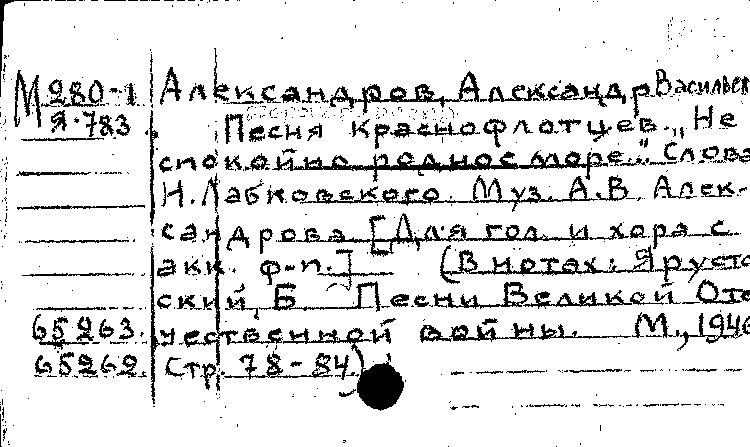 М 280-1 Александров, Александр Васильев
Я-783. Песня краснофлотцев. „Не
спокойно родное море." Слова
Н. Лабковского. Муз. А.В. Алек-
сандрова [Для гол. и хора с
акк. ф-п.] (В нотах: Ярусто
ский, Б. Песни Великой Оте
65263. чественной войны. М., 1946
65262. Стр. 78-84)